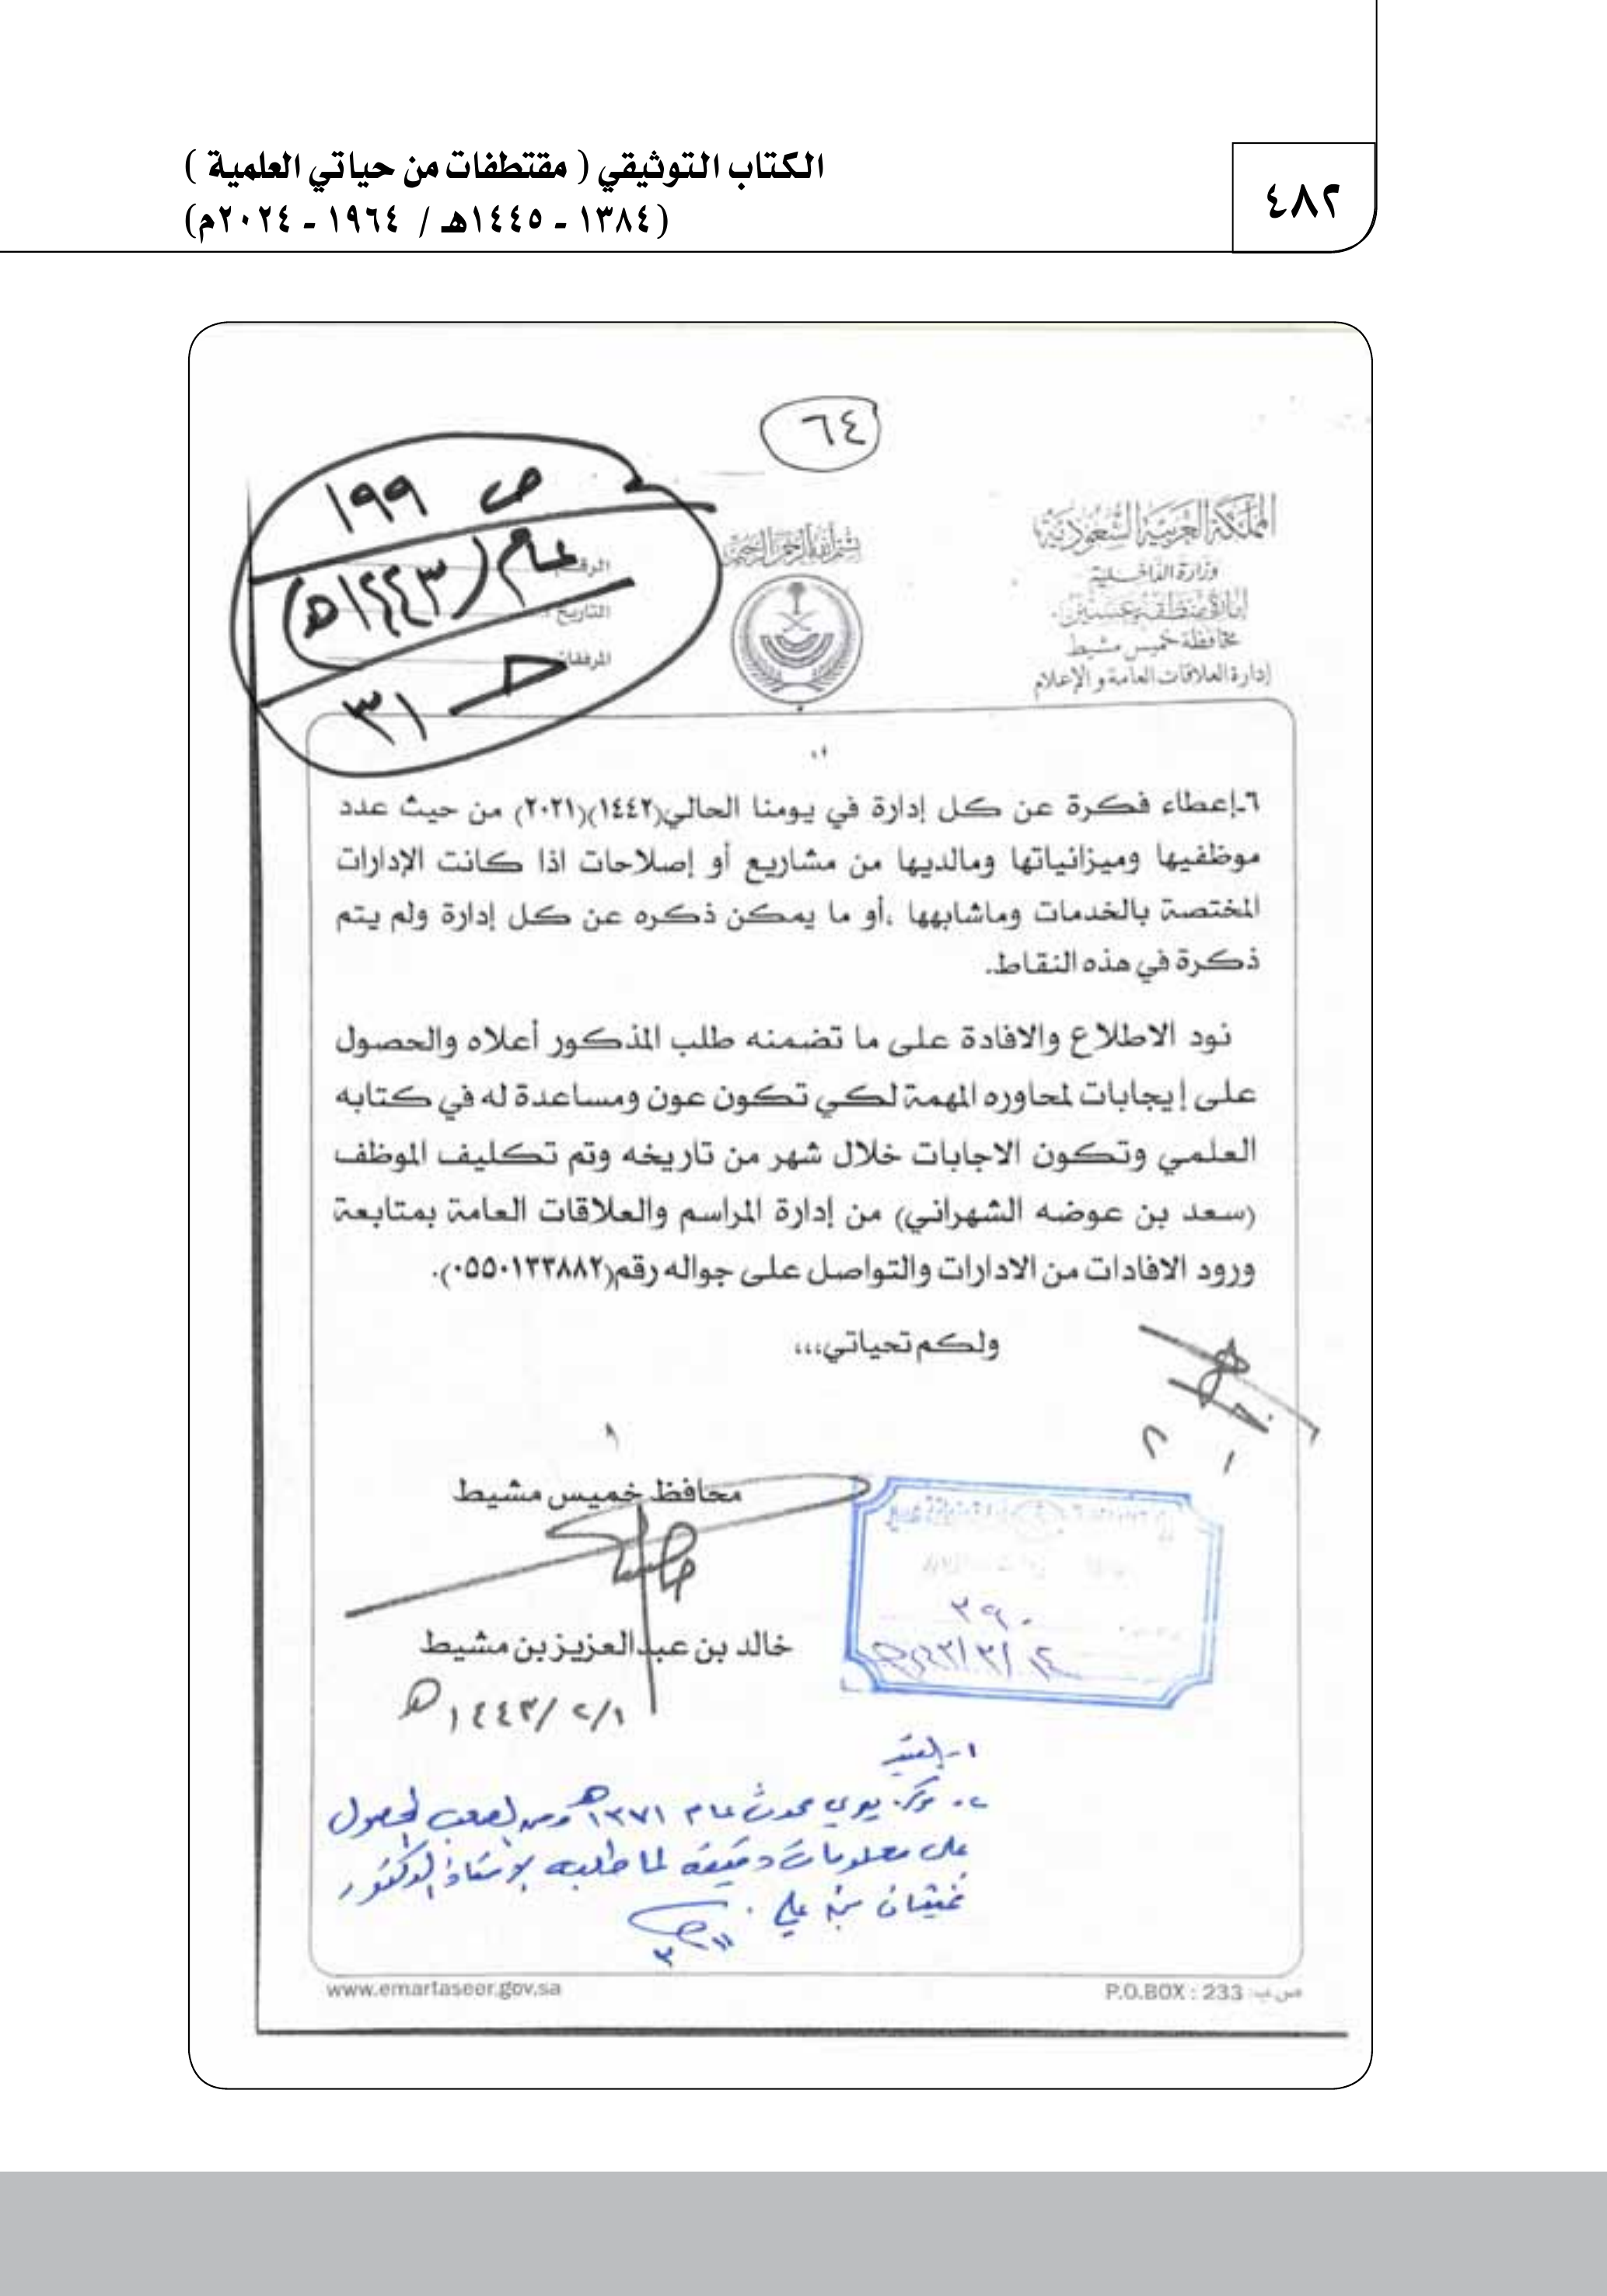 ٤٨٢
الكتاب التوثيقي ( مقتطفات من حياتي العلمية )
(١٣٨٤ - ١٤٤٥هـ / ١٩٦٤ - ٢٠٢٤م)
٦٤
ص ١٩٩
عام (١٤٤٣هـ)
حـ ٣١
المملكة العربية السعودية
وزارة الداخلية
إمارة منطقة عسير
محافظة خميس مشيط
إدارة العلاقات العامة و الإعلام
بسم الله الرحمن الرحيم
الرقم
التاريخ
المرفقات
٦-إعطاء فكرة عن كل إدارة في يومنا الحالي(١٤٤٢)(٢٠٢١) من حيث عدد
موظفيها وميزانياتها ومالديها من مشاريع أو إصلاحات اذا كانت الإدارات
المختصة بالخدمات وماشابهها ،أو ما يمكن ذكره عن كل إدارة ولم يتم
ذكرة في هذه النقاط.
نود الاطلاع والافادة على ما تضمنه طلب المذكور أعلاه والحصول
على إيجابات لمحاوره المهمة لكي تكون عون ومساعدة له في كتابه
العلمي وتكون الاجابات خلال شهر من تاريخه وتم تكليف الموظف
(سعد بن عوضه الشهراني) من إدارة المراسم والعلاقات العامة بمتابعة
ورود الافادات من الادارات والتواصل على جواله رقم(٠٥٥٠١٣٣٨٨٢).
ولكم تحياتي،،،
محافظ خميس مشيط
خالد بن عبدالعزيز بن مشيط
١٤٤٣/٢/١هـ
٣٩٠
٢- مركز يعرى محدث عام ١٣٧١هـ ومن الصعب الحصول
على معلومات دقيقة لما طلبه الاستاذ الدكتور
غيثان بن علي .
www.emartaseer.gov.sa
P.O.BOX : 233 ص.ب: